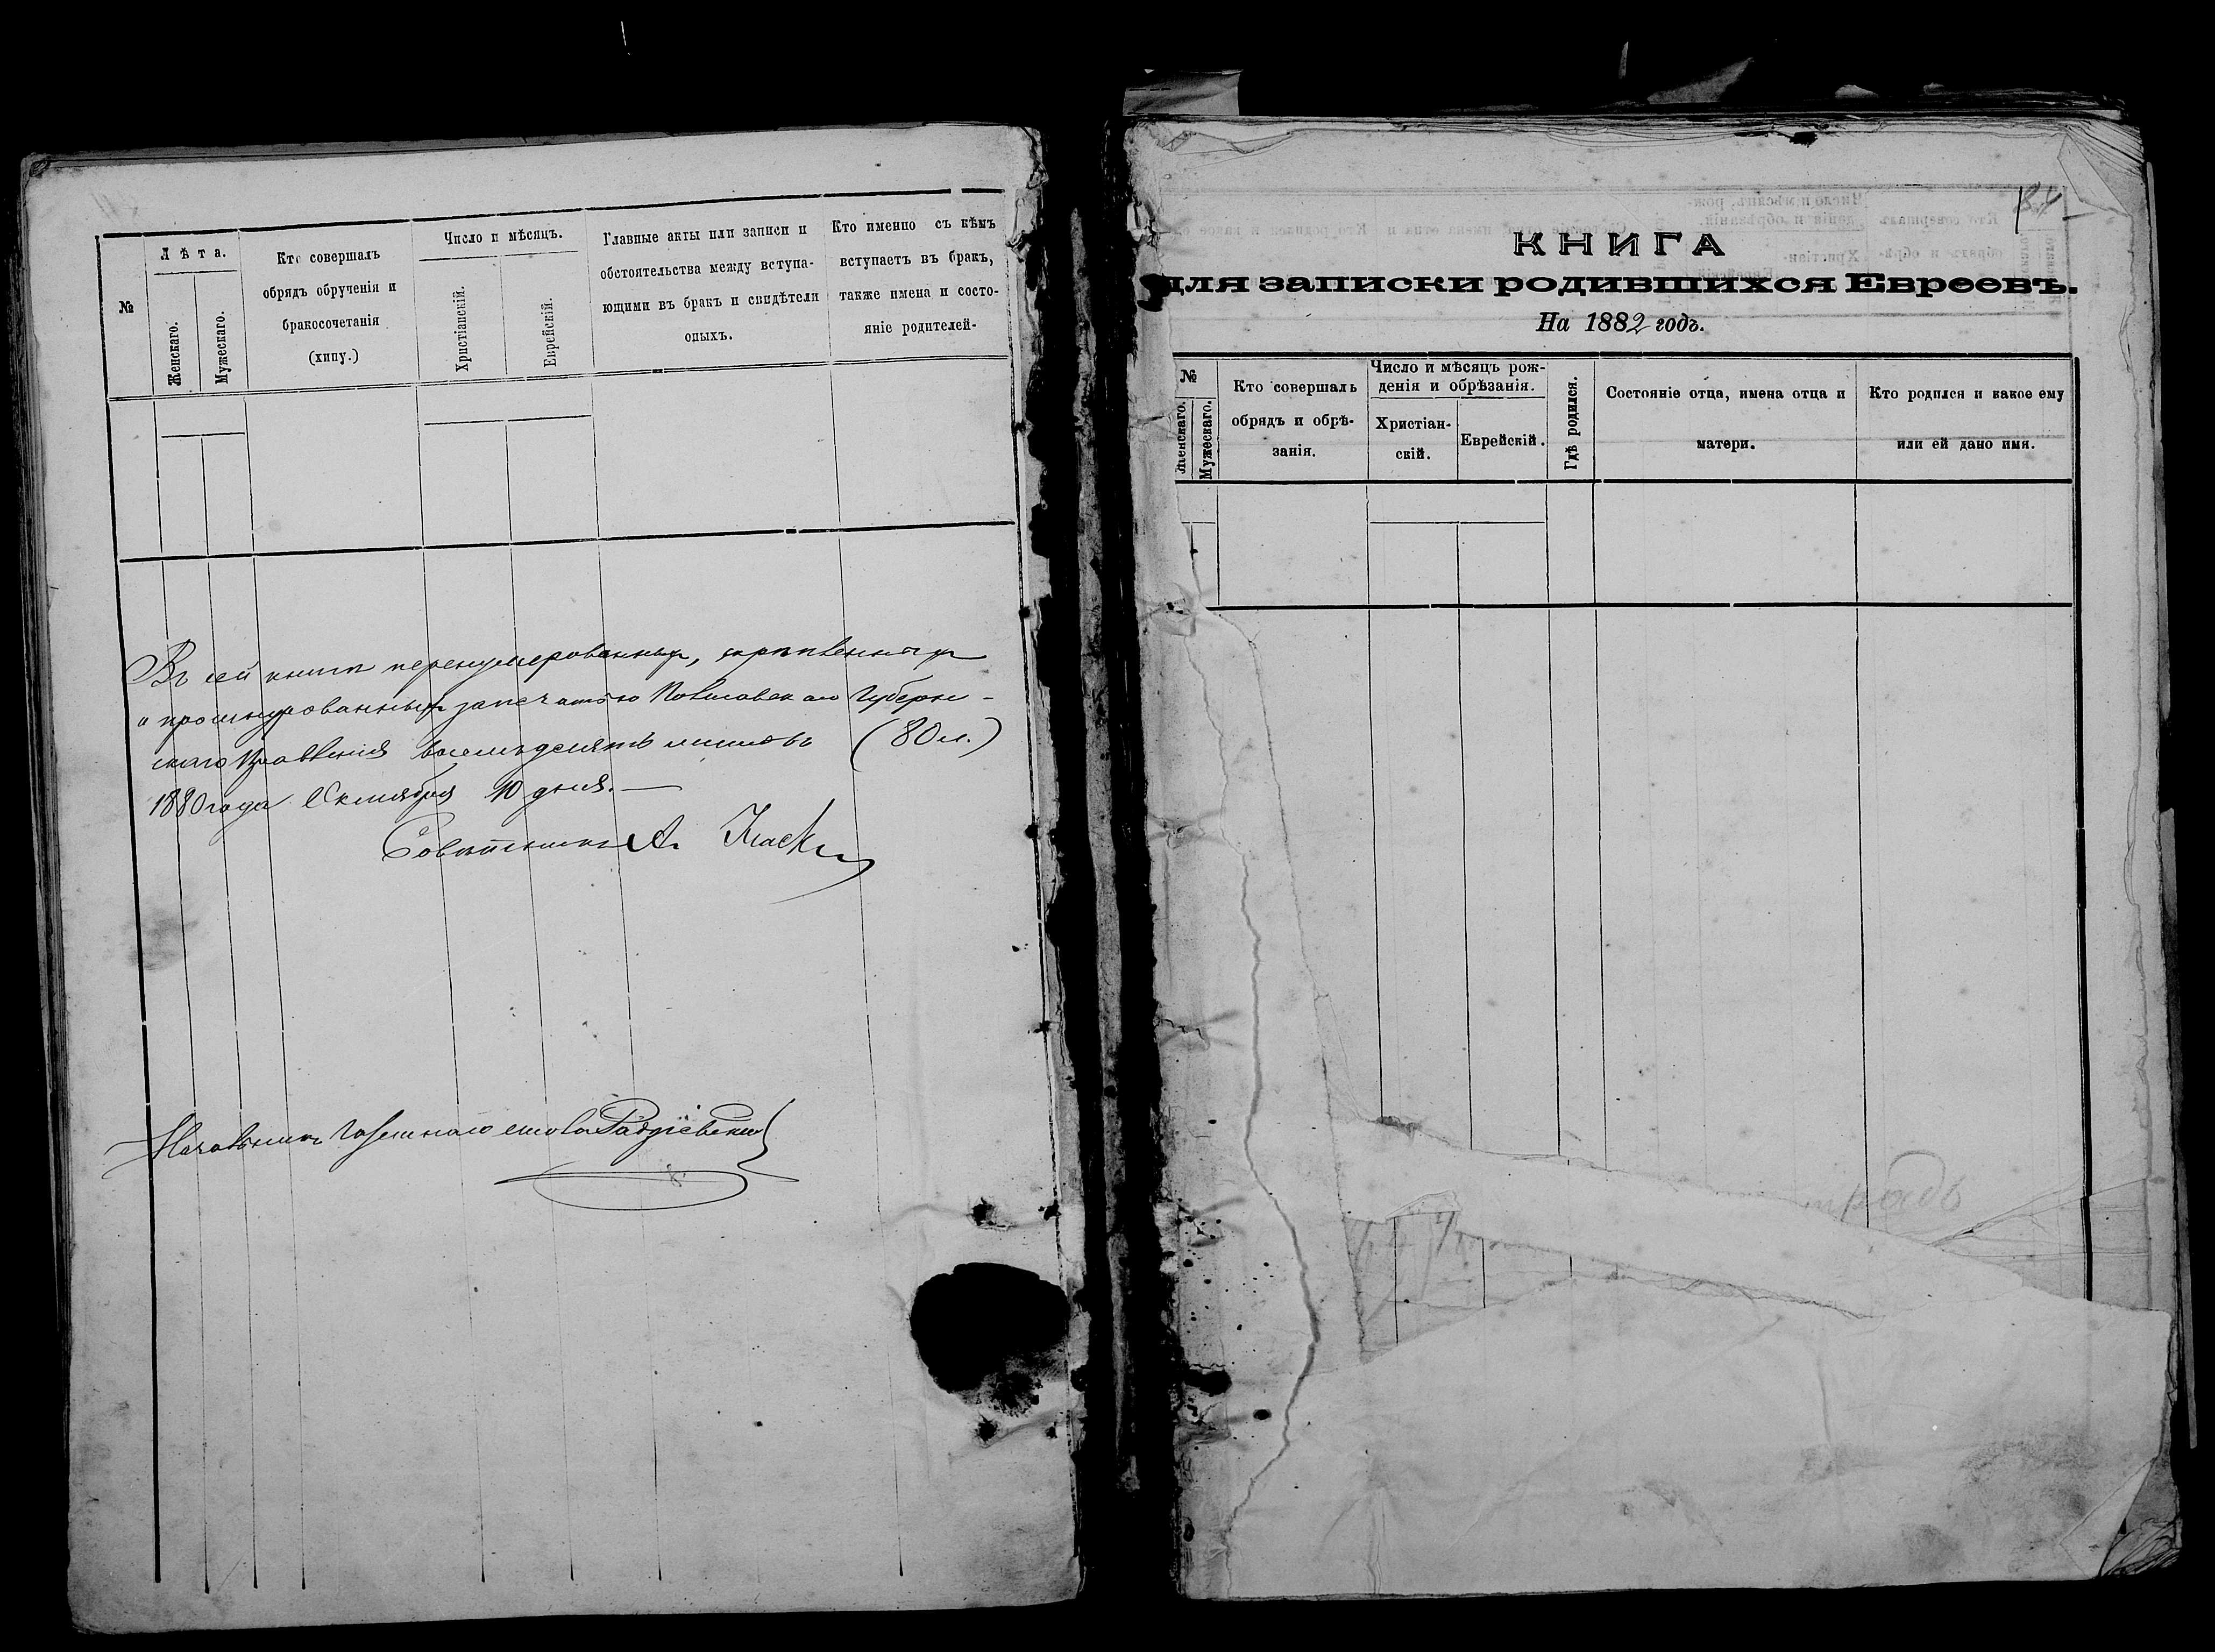 №
Лѣта.
Женскаго.
Мужескаго.
Кто совершалъ
обрядъ обрученія и
бракосочетанія
(хипу.)
Число и мѣсяцъ.
Христіанскій.
Еврейскій.
Главные акты или записи и
обстоятельства между вступа-
ющими въ бракъ и свидѣтели
оныхъ.
Кто именно съ кѣмъ
вступаетъ въ бракъ,
также имена и состо-
яніе родителей-
Въ сей книгѣ перенумерованныхъ, скрѣпленныхъ
и прошнурованныхъ за печатью Губерн-
скаго Правленія восемьдесятъ листовъ (80 л.)
1880 года Октября 10 дня.—
Совѣтникъ А.
Начальникъ Газетнаго стола Радзіевскій
КНИГА
для записки родившихся Евреевъ.
На 1882 годъ.
№
Женскаго.
Мужескаго.
Кто совершалъ
обрядъ и обрѣ-
занія.
Число и мѣсяцъ рож-
денія и обрѣзанія.
Христіан-
скій.
Еврейскій.
Гдѣ родился.
Состояніе отца, имена отца и
матери.
Кто родился и какое ему
или ей дано имя.